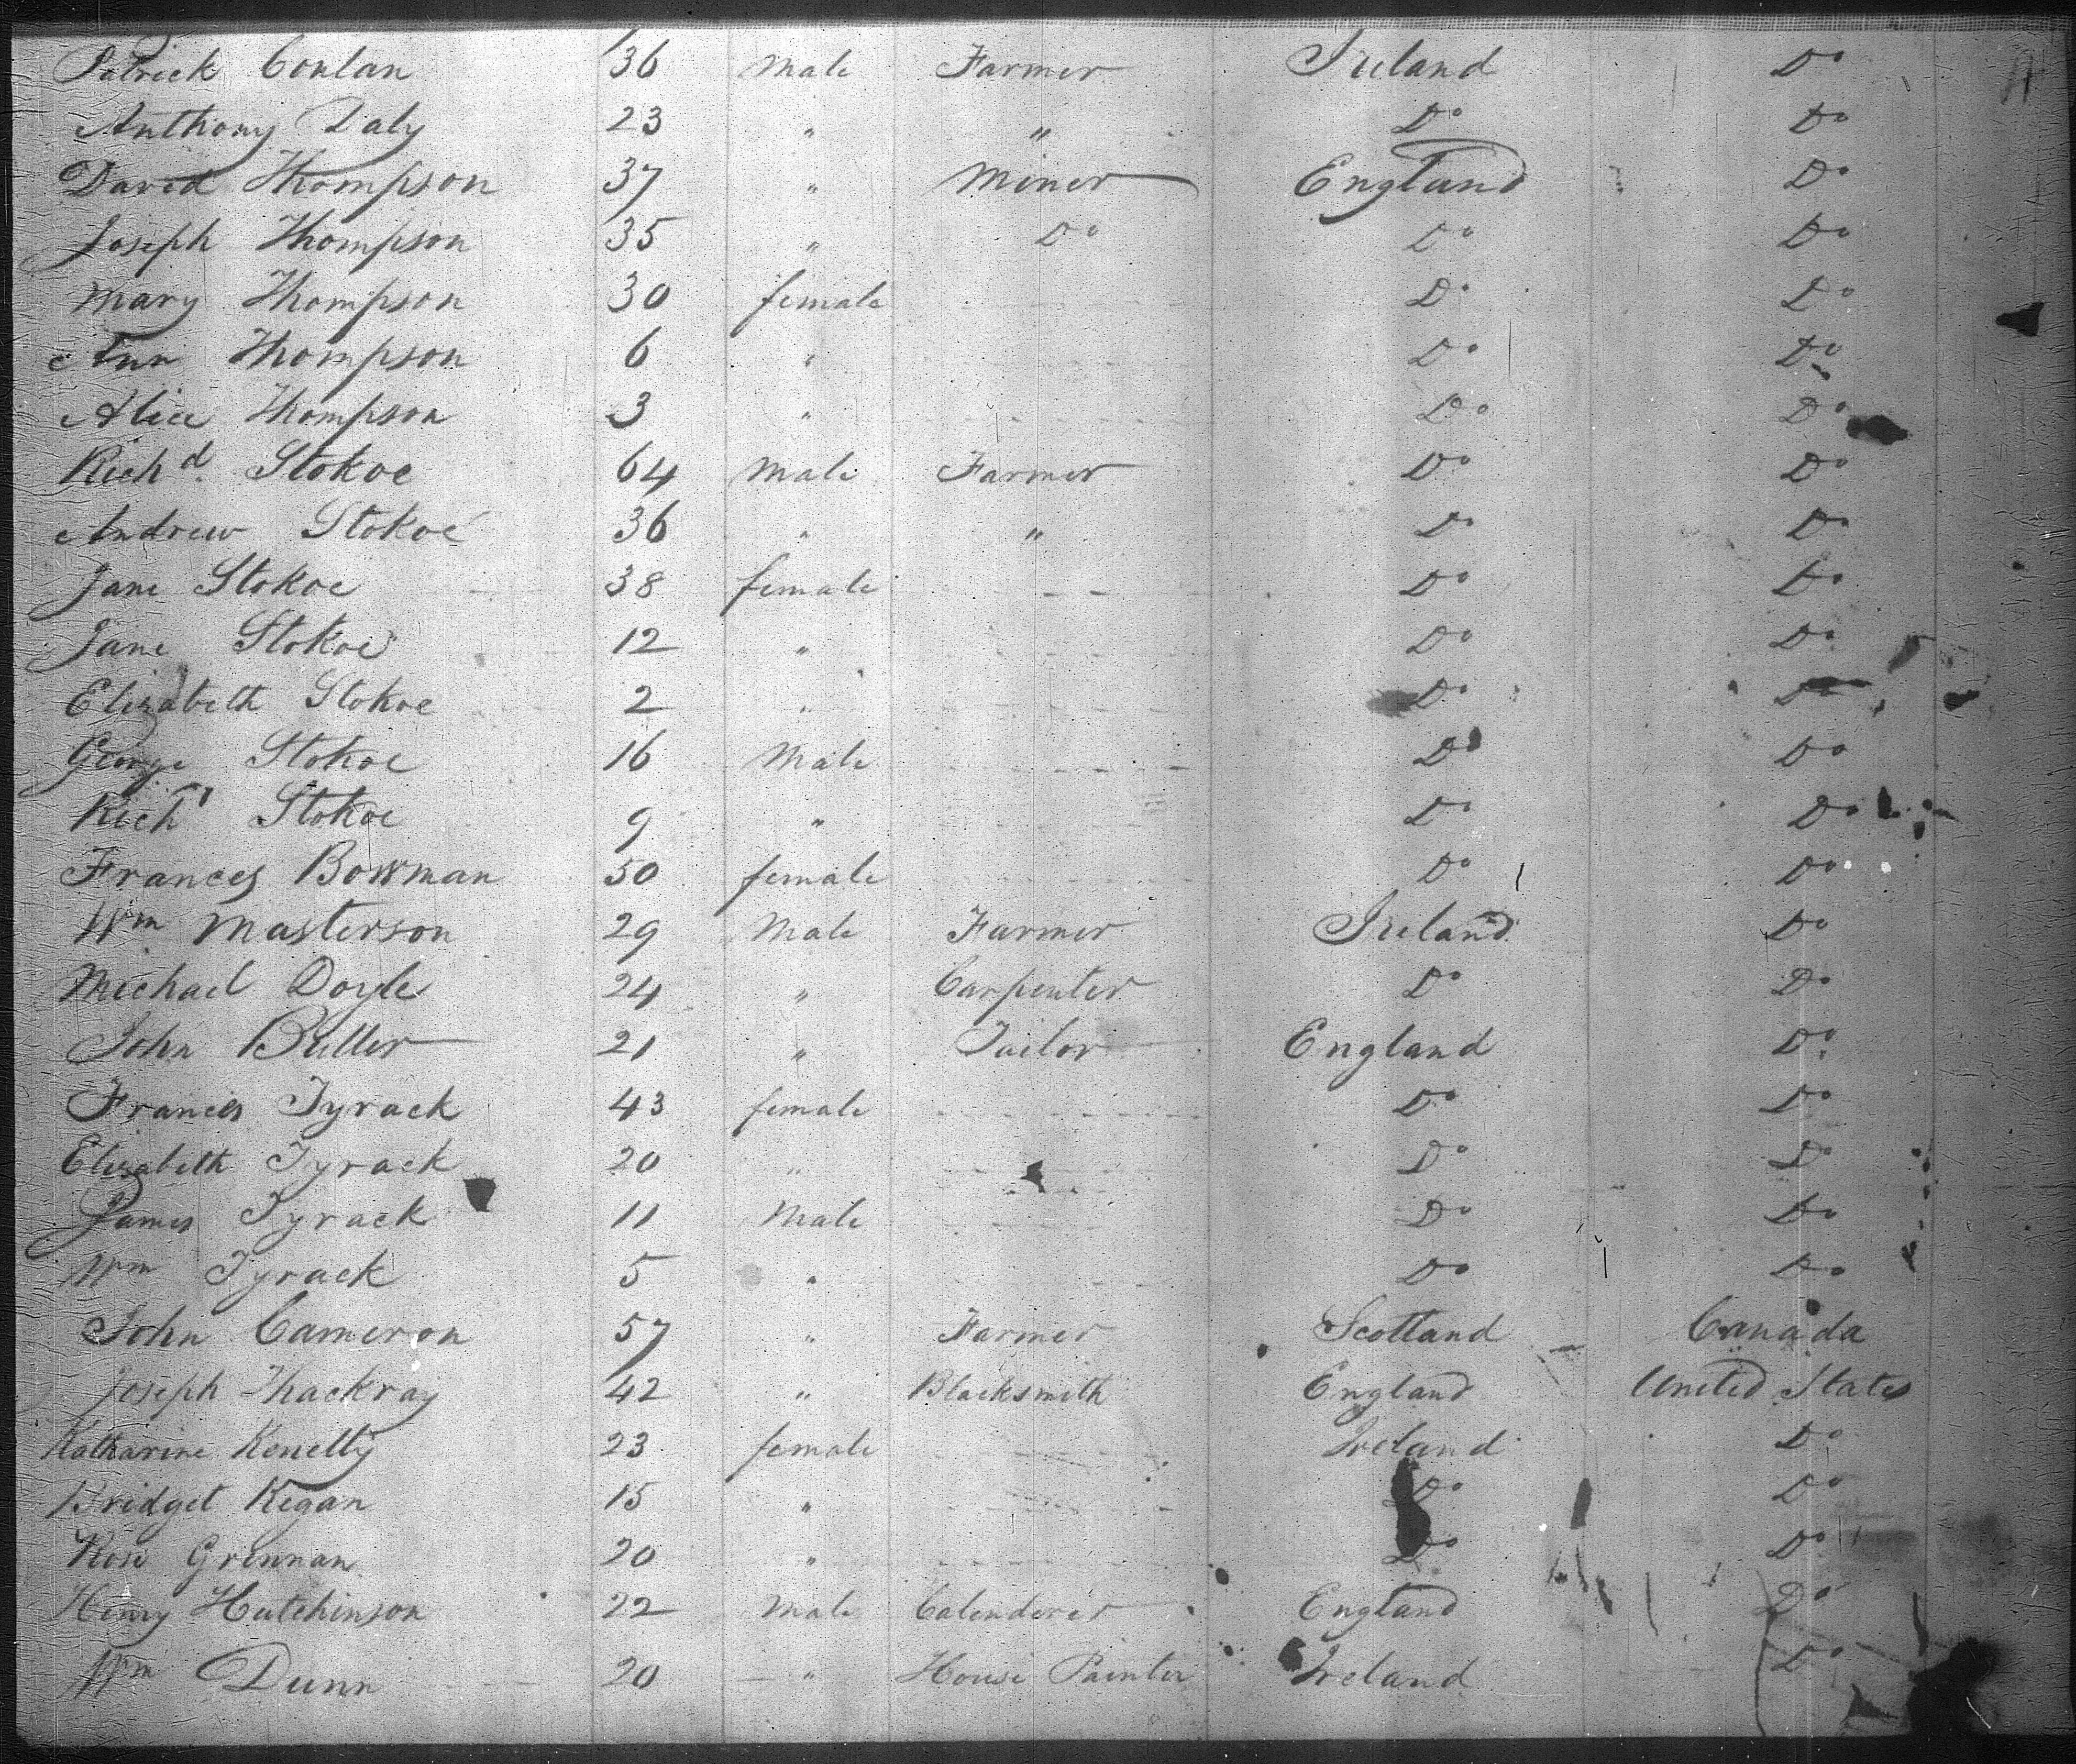 Patrick Conlan 36 Male Farmer Ireland Do
Anthony Daly 23 " " Do Do
David Thompson 37 " Miner England Do
Joseph Thompson 35 " Do Do Do
Mary Thompson 30 female Do Do
Ann Thompson 6 " Do Do
Alice Thompson 3 " Do Do
Richd. Stokoe 64 Male Farmer Do Do
Andrew Stokoe 36 " " Do Do
Jane Stokoe 38 female - - Do Do
Jane Stokoe 12 " Do Do
Elizabeth Stokoe 2 " Do Do
George Stokoe 16 Male Do Do
Richd Stokoe 9 " Do Do
Frances Bowman 50 female Do Do
Wm Masterson 29 Male Farmer Ireland Do
Michael Doyle 24 " Carpenter Do Do
John Buller 21 " Tailor England Do
Frances Tyrack 43 female Do Do
Elizabeth Tyrack 20 " Do Do
James Tyrack 11 Male Do Do
Wm Tyrack 5 " Do Do
John Cameron 57 " Farmer Scotland Canada
Joseph Thackray 42 " Blacksmith England United States
Katharine Kenelly 23 female Ireland Do
Bridget Kegan 15 " Do Do
Rose Grennan 20 " Do Do
Henry Hutchinson 22 Male Calenderer England Do
Wm Dunn 20 " House Painter Ireland Do